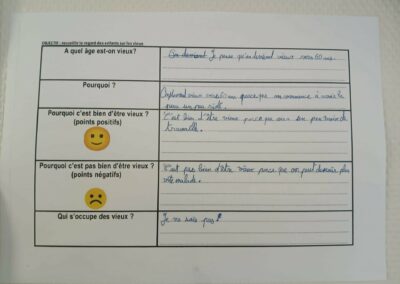 OBJECTIF : recueillir le regard des enfants sur les vieux
A quel âge est-on vieux?
On devient Je pense qu'on devient vieux vers 60 ans.
Pourquoi ?
vieux vers 60 ans parce que on commence à avoir la
peau un peu ridée.
Pourquoi c'est bien d'être vieux ?
(points positifs)
C'est bien d'être vieux parce que on a
travaille.
Pourquoi c'est pas bien d'être vieux ?
(points négatifs)
C'est pas bien d'être vieux parce que on peut devenir plus
vite malade.
Qui s'occupe des vieux ?
Je ne sais pas !